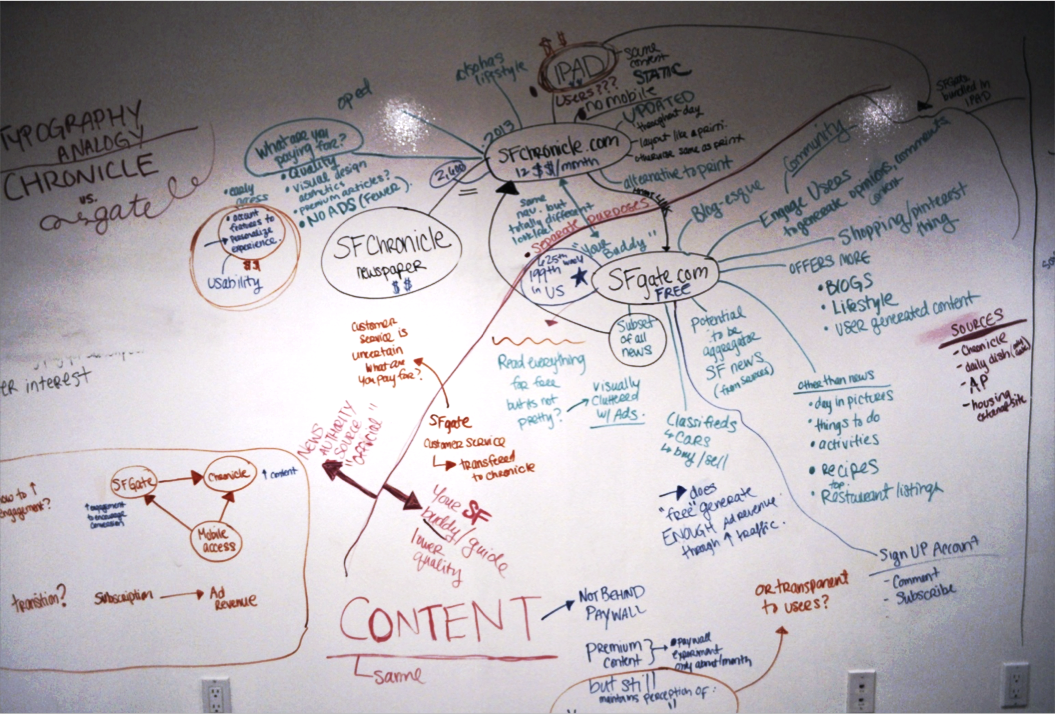 TYPOGRAPHY
ANALOGY
CHRONICLE
vs.
sfgate
IPAD
$$
USERS???
no mobile
same
content
STATIC
UPDATED
throughout day
layout like a print:
otherwise same as print
SFGate
bundled in
IPAD
also has
lifestyle
oped
2013
SFChronicle.com
12 $$/month
What are you
paying for?
• Quality
• visual design
aesthetics
• premium articles?
• NO ADS (fewer).
• early
access
• account
features to
personalize
experience.
$$
usability
SFChronicle
newspaper
$$
alternative to print
same
nav. but
totally different
• separate purposes
"Your
Buddy"
199th
in US
SFgate.com
FREE
Subset
of all
news
Blog-esque
Community
Engage Users
to generate opinions, comments
content
Shopping/pinterest
thing
OFFERS MORE
• BLOGS
• Lifestyle
• user generated content
SOURCES
- Chronicle
- daily dish
- AP
- housing
Potential
to be
aggregator
SF news
(from sources)
Other than news
• day in pictures
• things to do
• activities
• Recipes
• Restaurant listings
top
Customer
service is
uncertain
what are
you pay for?
SFgate
customer service
↳ transferred
to chronicle
Read everything
for free
but its not
pretty?
visually
cluttered
w/ Ads.
Classifieds
↳ CARS
↳ buy/sell
→ does
"free" generate
ENOUGH Ad revenue
through ↑ traffic.
Sign UP Account
- Comment
- Subscribe
er interest
NEWS
AUTHORITY
SOURCE
"OFFICIAL"
Your SF
buddy/guide
lower
quality
how to ↑
engagement?
SFGate
Chronicle
↑ content
↑ engagement
to encourage
conversion
Mobile
access
transition?
Subscription → Ad
Revenue
CONTENT
same
NOT BEHIND
PAYWALL
premium
content
• paywall
experiment
only about/month
but still
maintains perception of:
OR transparent
to users?